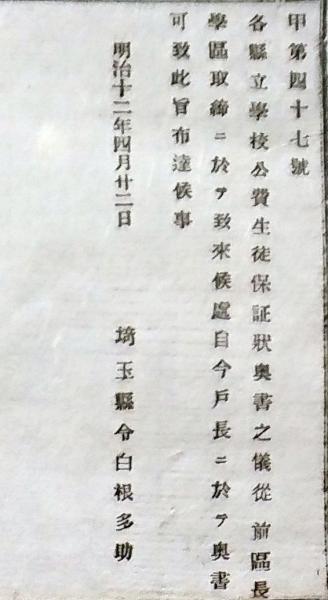 甲第四十七號
各縣立學校公費生徒保証狀奥書之儀從前區長
學區取締ニ於テ致來候處自今戸長ニ於テ奥書
可致此旨布達候事
明治十二年四月廿二日
埼玉縣令白根多助